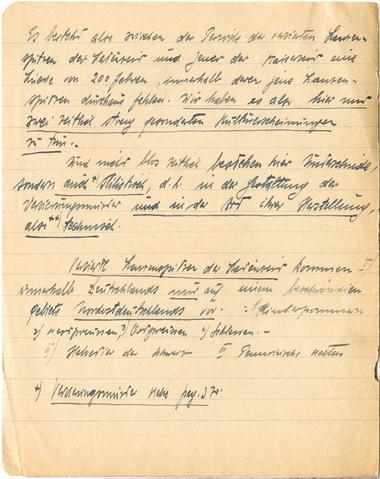 Es besteht also zwischen der Periode der verzierten Lanzen-
spitzen der Latènezeit und jener der Kaiserzeit eine
Lücke von 200 Jahren, innerhalb derer jene Lanzen-
spitzen durchaus fehlen. Wir haben es also hier mit
zwei zeitlich streng gesonderten Kulturerscheinungen
zu tun.-
Und nicht blos zeitlich bestehen hier Unterschiede,
sondern auch *) stilistisch, d.h. in der Gestaltung der
Verzierungsmuster und in der Art ihrer Herstellung,
also **) technisch.
Verzierte Lanzenspitzen der Latènezeit kommen
innerhalb Deutschlands nur auf einem beschränkten
gebiete Nordostdeutschlands vor. Hinterpommern
2) Westpreussen, 3) Ostpreussen 4) Schlesien.-
II) Helvetier der Schweiz III
*) Verzierungsmuster siehe pag. 37.